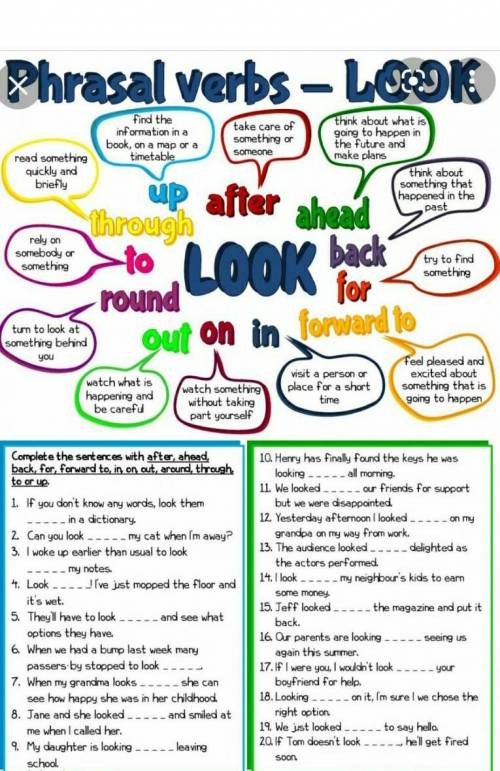 Phrasal verbs – LOOK
find the
information in a
book, on a map or a
timetable
take care of
something or
someone
think about what is
going to happen in
the future and
make plans
read something
quickly and
briefly
think about
something that
happened in the
past
up
after
ahead
through
rely on
somebody or
something
to
LOOK
back
try to find
something
round
for
turn to look at
something behind
you
out
on
in
forward to
watch what is
happening and
be careful
watch something
without taking
part yourself
visit a person or
place for a short
time
feel pleased and
excited about
something that is
going to happen
Complete the sentences with after, ahead,
back, for, forward to, in, on, out, around, through,
to or up.
1. If you don't know any words, look them
_____ in a dictionary.
2. Can you look _____ my cat when I'm away?
3. I woke up earlier than usual to look
_____ my notes.
4. Look _____! I've just mopped the floor and
it's wet.
5. They'll have to look _____ and see what
options they have.
6. When we had a bump last week many
passers-by stopped to look _____.
7. When my grandma looks _____ she can
see how happy she was in her childhood.
8. Jane and she looked _____ and smiled at
me when I called her.
9. My daughter is looking _____ leaving
school.
10. Henry has finally found the keys he was
looking _____ all morning.
11. We looked _____ our friends for support
but we were disappointed.
12. Yesterday afternoon I looked _____ on my
grandpa on my way from work.
13. The audience looked _____ delighted as
the actors performed.
14. I look _____ my neighbour's kids to earn
some money.
15. Jeff looked _____ the magazine and put it
back.
16. Our parents are looking _____ seeing us
again this summer.
17. If I were you, I wouldn't look _____ your
boyfriend for help.
18. Looking _____ on it, I'm sure I we chose the
right option.
19. We just looked _____ to say hello.
20. If Tom doesn't look _____, he'll get fired
soon.